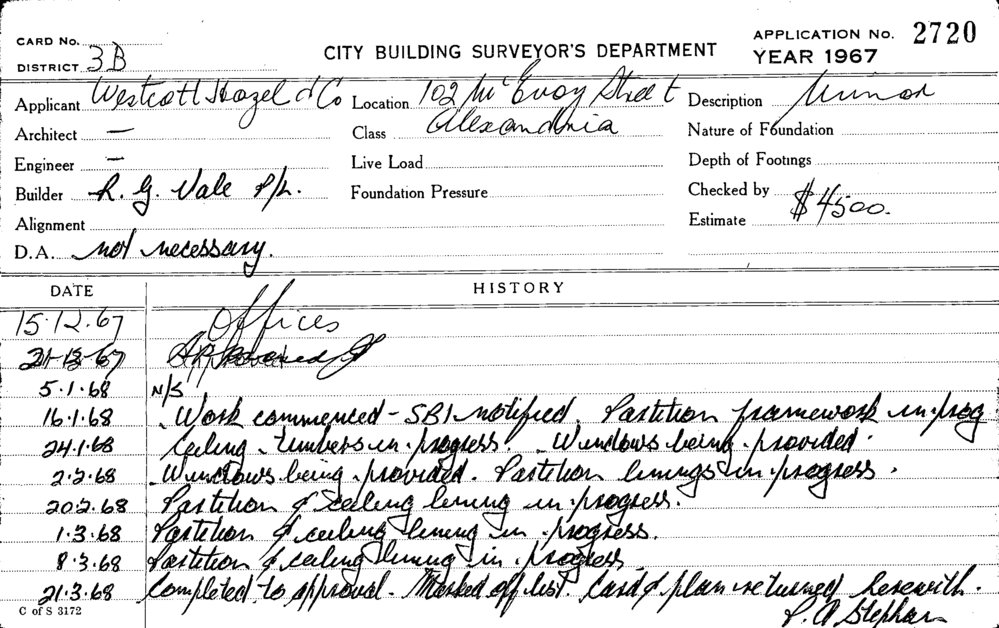 CARD No.
DISTRICT 3B
CITY BUILDING SURVEYOR'S DEPARTMENT
APPLICATION No. 2720
YEAR 1967
Applicant Westcott Hazel & Co Location 102 Mc Evoy Street Description Minor
Alexandria
Architect — Class Nature of Foundation
Engineer — Live Load Depth of Footings
Builder R. G. Vale P/L. Foundation Pressure Checked by
Alignment Estimate $4500.
D.A. not necessary.
DATE HISTORY
15.12.67 Offices
21.12.67 Approved
5.1.68 N/S
16.1.68 Work commenced - SBI notified. Partition framework in prog
24.1.68 Ceiling timbers in progress. Windows being provided.
2.2.68 Windows being provided. Partition linings in progress.
20.2.68 Partition & ceiling lining in progress.
1.3.68 Partition & ceiling lining in progress.
8.3.68 Partition & ceiling lining in progress
21.3.68 Completed to approval. Marked off list. Card & plan returned herewith.
C of S 3172